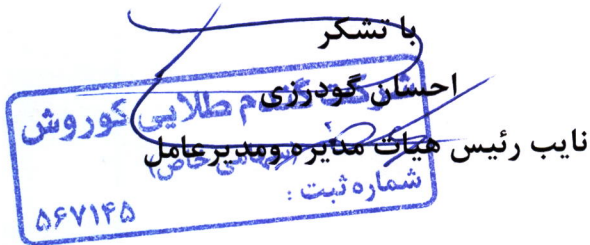 با تشکر
احسان گودرزی
نایب رئیس هیات مدیره ومدیرعامل
شرکت گندم طلایی کوروش
(سهامی خاص)
شماره ثبت :
۵۶۷۱۴۵